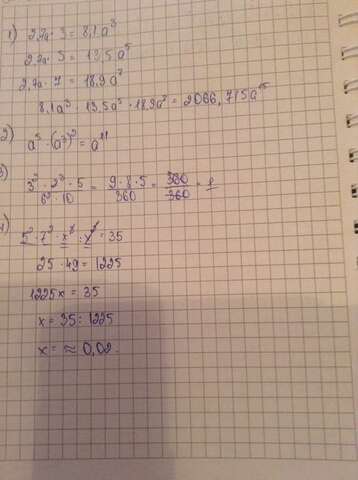 1) 2,7a · 3 = 8,1a³
2,7a · 5 = 13,5a⁵
2,7a · 7 = 18,9a⁷
8,1a³ · 13,5a⁵ · 18,9a⁷ = 2066,715a¹⁵
2) a⁵ · (a³)² = a¹¹
3) 3² · 2³ · 5 / 6² · 10 = 9 · 8 · 5 / 360 = 360 / 360 = 1
5² · 7² · x⁸ : x⁷ = 35
25 · 49 = 1225
1225x = 35
x = 35 : 1225
x = ≈ 0,02.